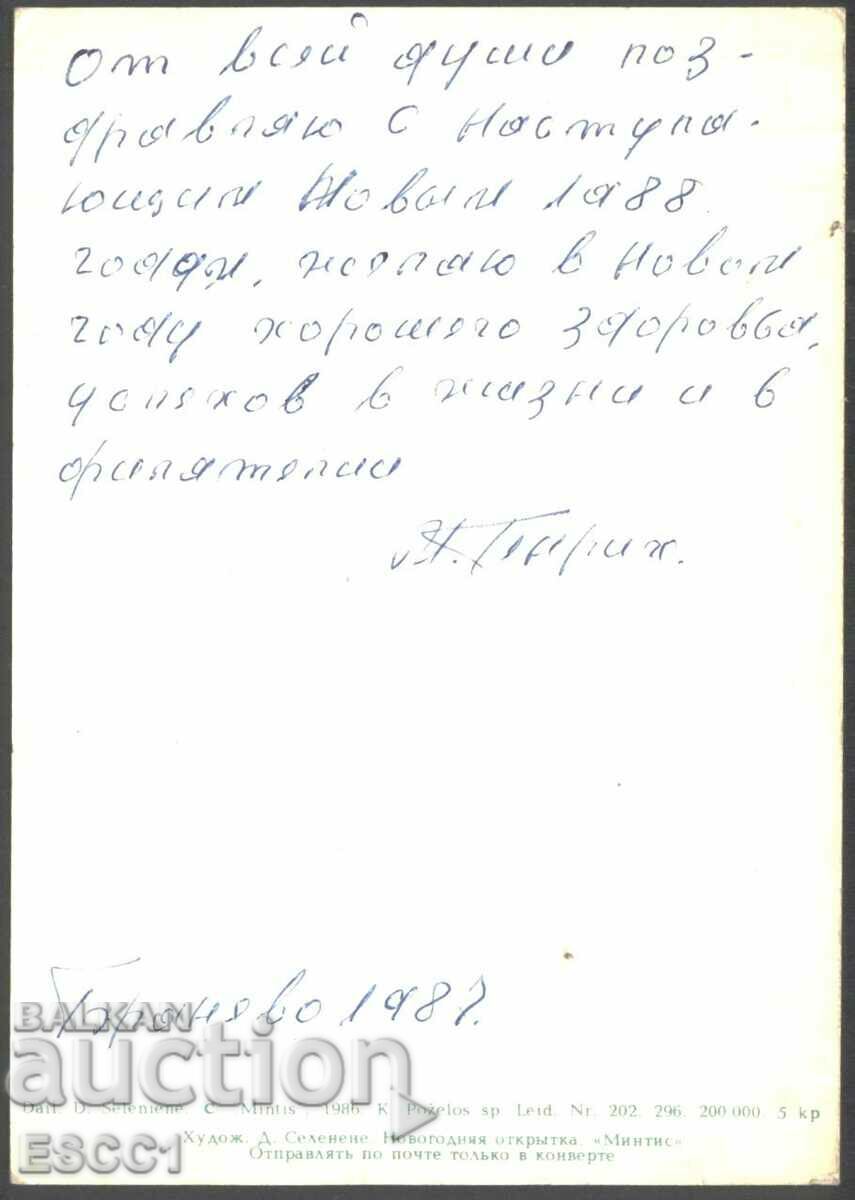 От всей души поз-
дравляю с наступа-
ющим Новым 1988
годом, желаю в новом
году хорошего здоровья,
успехов в жизни и в
филателии
Генрих.
1987.
BALKAN
auction
Dail. D. Selenienė. C „Mintis“, 1986. K. Poželos sp. Leid. Nr. 202. 296. 200 000. 5 kp
Худож. Д. Селенене. Новогодняя открытка. «Минтис»
Отправлять по почте только в конверте
ESCC1